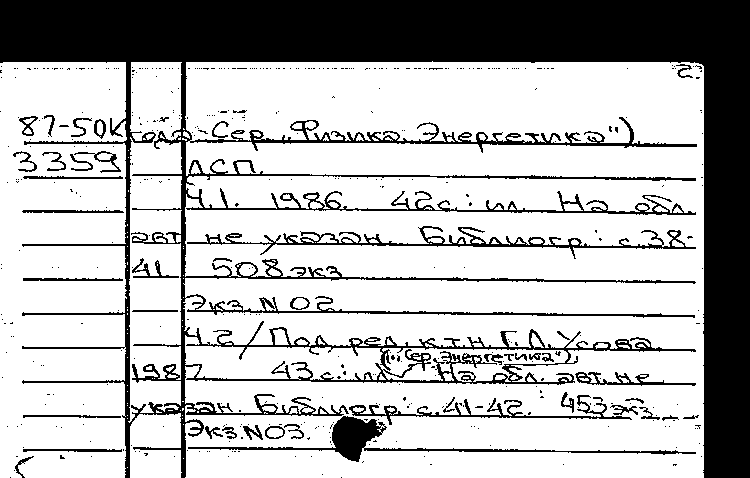 2.
87-50К года. Сер. „Физика. Энергетика")
3359 ДСП.
Ч.1. 1986. 42с.: ил. На обл.
авт. не указан. Библиогр.: с.38-
41 508 экз
Экз. N 02.
Ч.2 / Под ред. к.т.н. Г.Л. Усова
(„Сер. Энергетика").
1987. 43 с.: ил. На обл. авт. не
указан. Библиогр.: с.41-42. 453 экз.
Экз. N03.